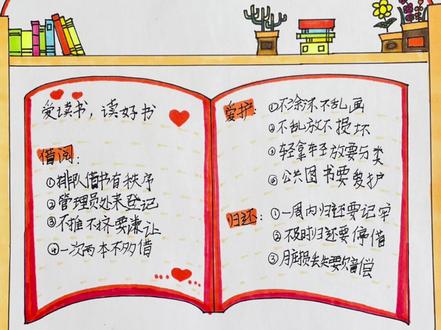 爱读书，读好书
借阅:
①排队借书有秩序
②管理员处来登记
③不推不挤要谦让
④一次两本不多借
爱护:
①不涂抹不乱画
②不乱放不损坏
③轻拿轻放要归类
④公共图书要爱护
归还:
①一周内归还要记牢
②不及时归还要停借
③脏损丢失要赔偿